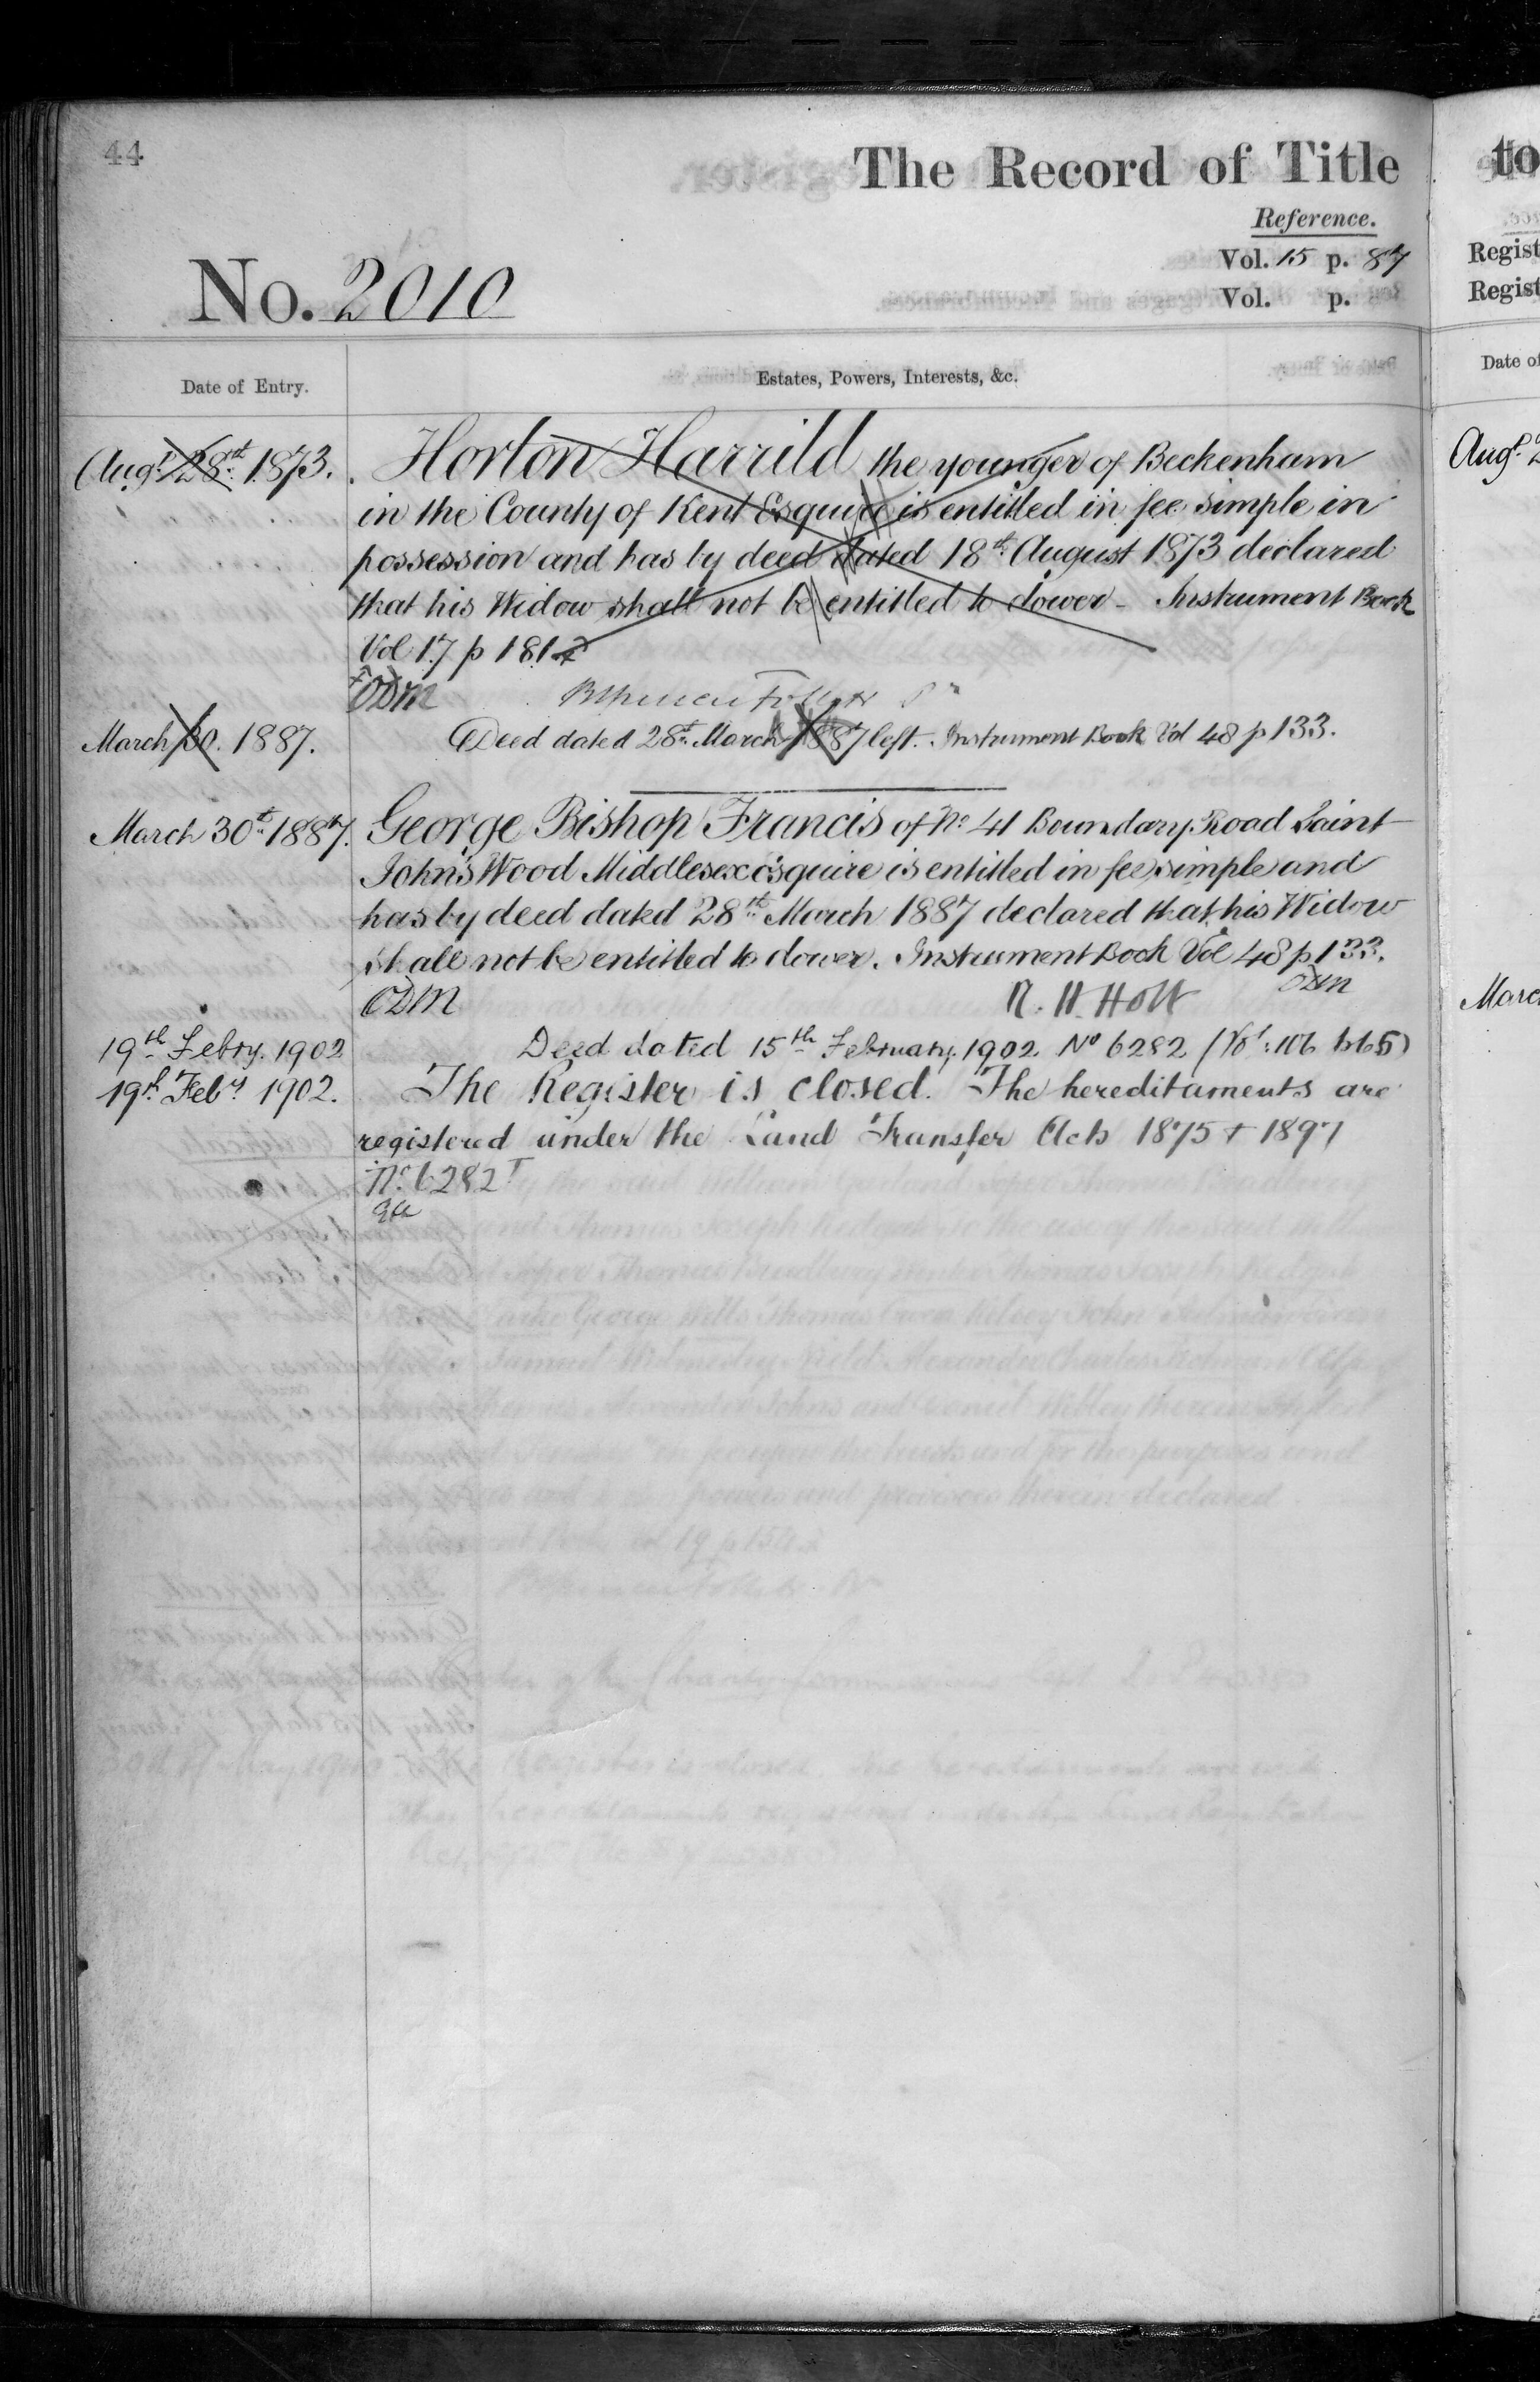 44
The Record of Title
Reference.
Vol. 15 p. 87
No. 2010
Vol. p.
Date of Entry.
Estates, Powers, Interests, &c.
Augt 28th 1873.
Horton Harrild the younger of Beckenham
in the County of Kent Esquire is entitled in fee simple in
possession and has by deed dated 18th August 1873 declared
that his Widow shall not be entitled to dower - Instrument Book
Vol 17 p 181
ODM
March 30. 1887.
Deed dated 28th March 1887 left. Instrument Book Vol 48 p 133.
March 30th 1887.
George Bishop Francis of No 41 Boundary Road Saint
John's Wood Middlesex esquire is entitled in fee simple and
has by deed dated 28th March 1887 declared that his Widow
shall not be entitled to dower. Instrument Book Vol 48 p 133.
ODM
R. H. Holt
ODM
19th Febry. 1902
Deed dated 15th February 1902 No 6282 (Vol: 106 p 65)
19th Feby 1902.
The Register is closed. The hereditaments are
registered under the Land Transfer Acts 1875 + 1897
No. 6282
to
Regist
Regist
Date of
Augt 2
Marc